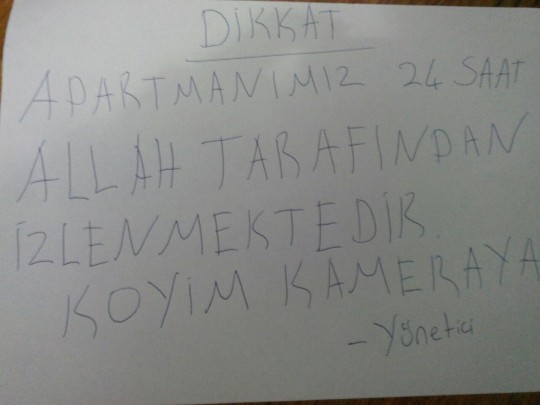 DİKKAT
APARTMANIMIZ 24 SAAT
ALLAH TARAFINDAN
İZLENMEKTEDİR.
KOYİM KAMERAYA
- Yönetici